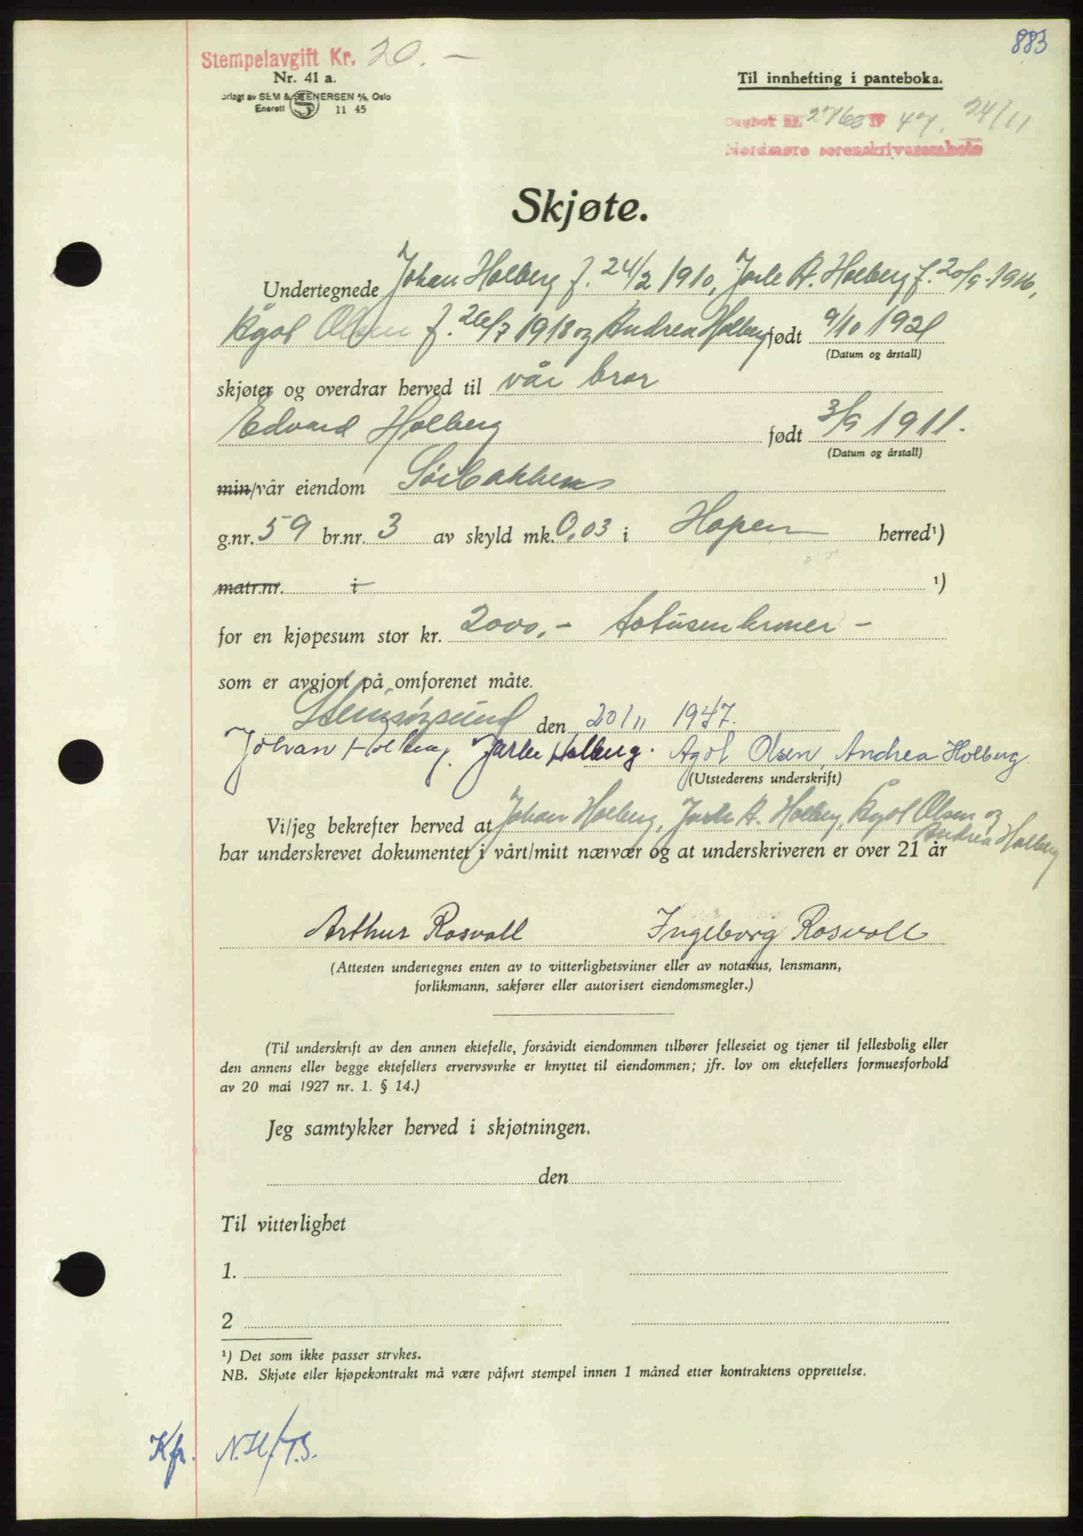 883
Stempelavgift Kr. 20.-
Nr. 41 a.
Til innhefting i panteboka.
SEM & STENERSEN A/S, Oslo
Enerett S 11 45
Dagbok nr. 2760 19 47. 24/11
Nordmøre sorenskriverembete
Skjøte.
Undertegnede Johan Holberg f. 24/2 1910, Jarle A. Holberg f. 20/9-1916,
Ågot Olsen f. 26/7 1918 og Andrea Holberg født 9/10 1921
(Datum og årstall)
skjøter og overdrar herved til vår bror
Edvard Holberg født 3/9 1911.
(Datum og årstall)
min/vår eiendom
g.nr. 59 br.nr. 3 av skyld mk. 0,03 i Hopen herred¹)
matr.nr. i ¹)
for en kjøpesum stor kr. 2000,- totusenkroner -
som er avgjort på omforenet måte.
Steinsøysund den 20/11 1947.
Johan Holberg. Jarle Holberg. Agot Olsen, Andrea Holberg.
(Utstederens underskrift)
Vi/jeg bekrefter herved at Johan Holberg, Jarle A. Holberg, Ågot Olsen og
Andrea Holberg
har underskrevet dokumentet i vårt/mitt nærvær og at underskriveren er over 21 år
Arthur Rosvoll Ingeborg Rosvoll
(Attesten undertegnes enten av to vitterlighetsvitner eller av notarius, lensmann,
forliksmann, sakfører eller autorisert eiendomsmegler.)
(Til underskrift av den annen ektefelle, forsåvidt eiendommen tilhører felleseiet og tjener til fellesbolig eller
den annens eller begge ektefellers ervervsvirke er knyttet til eiendommen; jfr. lov om ektefellers formuesforhold
av 20 mai 1927 nr. 1. § 14.)
Jeg samtykker herved i skjøtningen.
den
Til vitterlighet
1.
2
¹) Det som ikke passer strykes.
NB. Skjøte eller kjøpekontrakt må være påført stempel innen 1 måned etter kontraktens opprettelse.
Kfr. N.H./T.S.